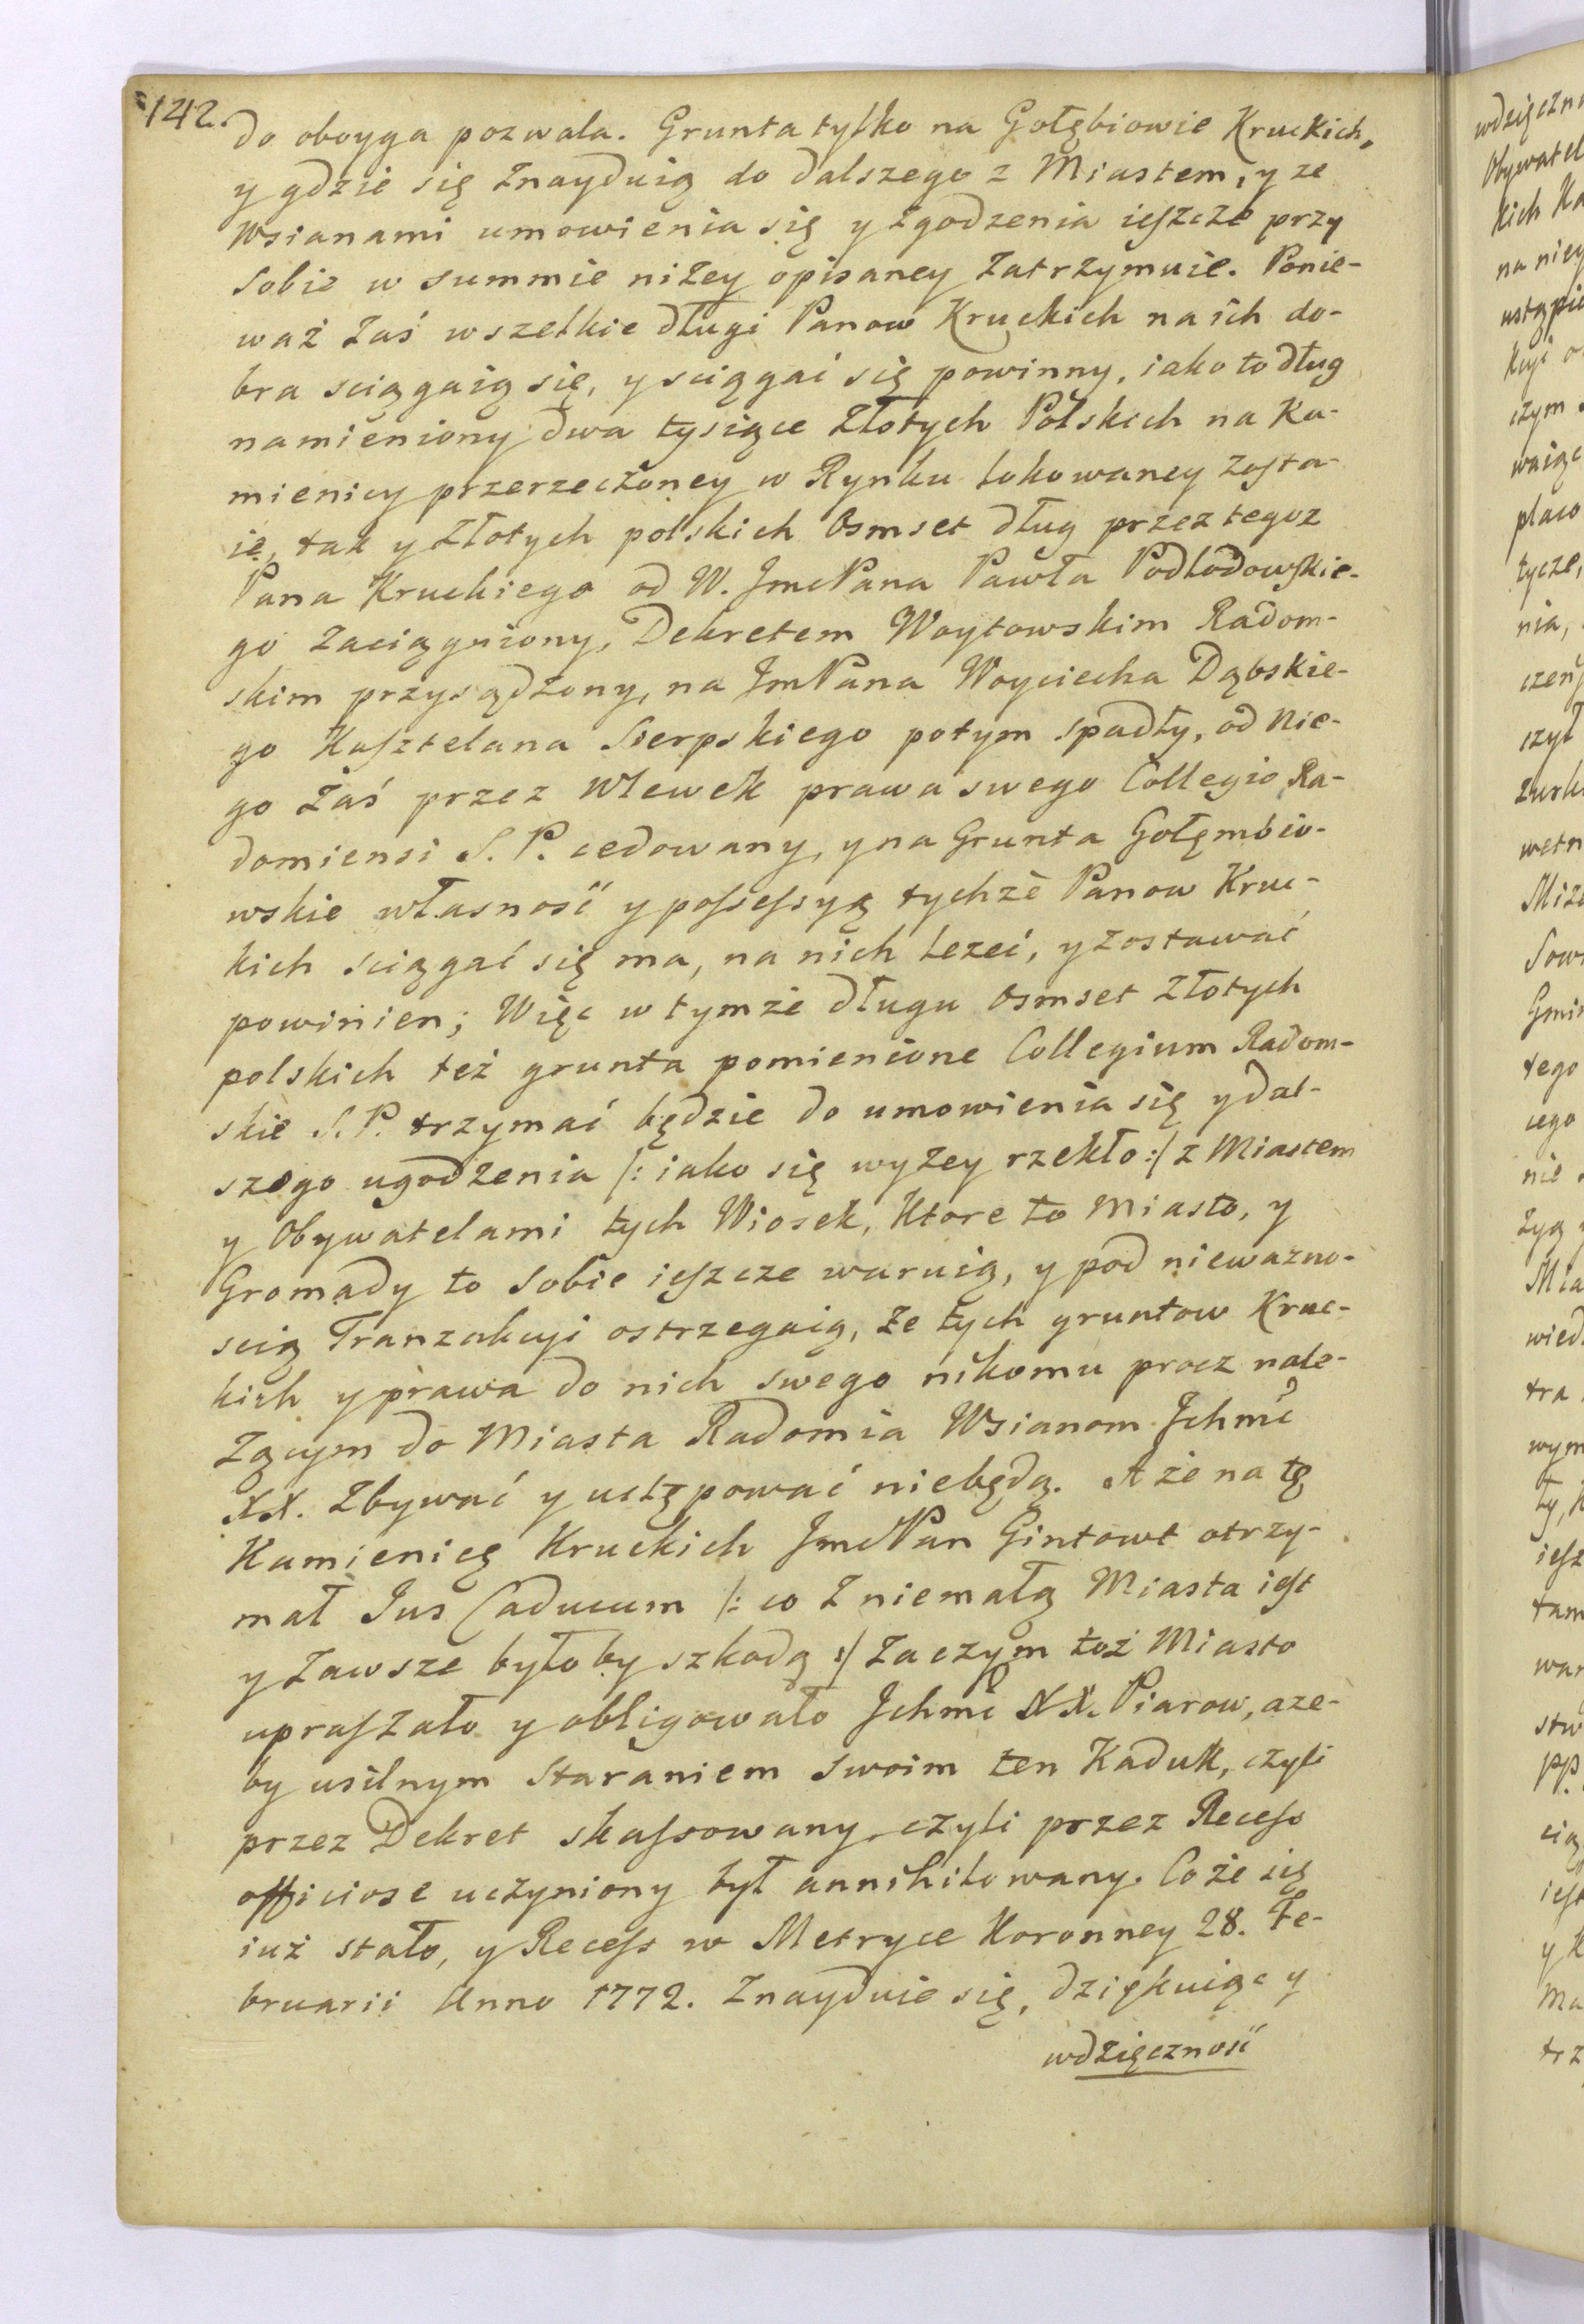 142.
do oboyga pozwala. Grunta tylko na Gołębiowie Kruckich,
y gdzie się znayduią do dalszego z Miastem, y ze
Wsianami umowienia się y zgodzenia ieszcze przy
sobie w summie niżey opisaney zatrzymuie. Ponie-
waż zaś wszelkie długi Panow Kruckich na ich do-
bra sciągaią się, y sciągać się powinny, iako to dług
namieniony dwa tysiące Złotych Polskich na Ka-
mienicy przerzeczoney w Rynku lokowaney zosta-
ie, tak y Złotych polskich Osmset dług przez tegoz
Pana Kruckiego od W. JmcPana Pawła Podlodowskie-
go zaciągniony, Dekretem Woytowskim Radom-
skim przysądzony, na JmPana Woyciecha Dąbskie-
go Kasztelana Sierpskiego potym spadły, od Nie-
go zaś przez Wlewek prawa swego Collegio Ra-
domiensi S. P. cedowany, y na Grunta Gołęmbio-
wskie własność y possessyą tychże Panow Kruc-
kich sciągać się ma, na nich leżeć, y zostawać
powinien; Więc w tymże długu Osmset Złotych
polskich też grunta pomienione Collegium Radom-
skie S. P. trzymać będzie do umowienia się y dal-
szego ugodzenia /: iako się wyżey rzekło :/ z Miastem
y Obywatelami tych Wiosek, Ktore to Miasto, y
Gromady to sobie ieszcze waruią, y pod nieważno-
scią Tranzakcyi ostrzegaią, że tych gruntow Kruc-
kich y prawa do nich swego nikomu procz nale-
żącym do Miasta Radomia Wsianom Jchmć
XX. zbywać y ustępować niebędą. A że na tę
Kamienicę Kruckich JmcPan Gintowt otrzy-
mał Jus Caducum /: co z niemałą Miasta iest
y zawsze byłoby szkodą :/ Zaczym toż Miasto
upraszało y obligowało Jchmć XX. Piarow, aże-
by usilnym staraniem swoim ten Kaduk, czyli
przez Dekret skassowany, czyli przez Recess
officiose uczyniony był annihilowany. Co że się
iuż stało, y Recess w Metryce Koronney 28. Fe-
bruarii Anno 1772. Znayduie się, dziękuiąc y
wdzięczność